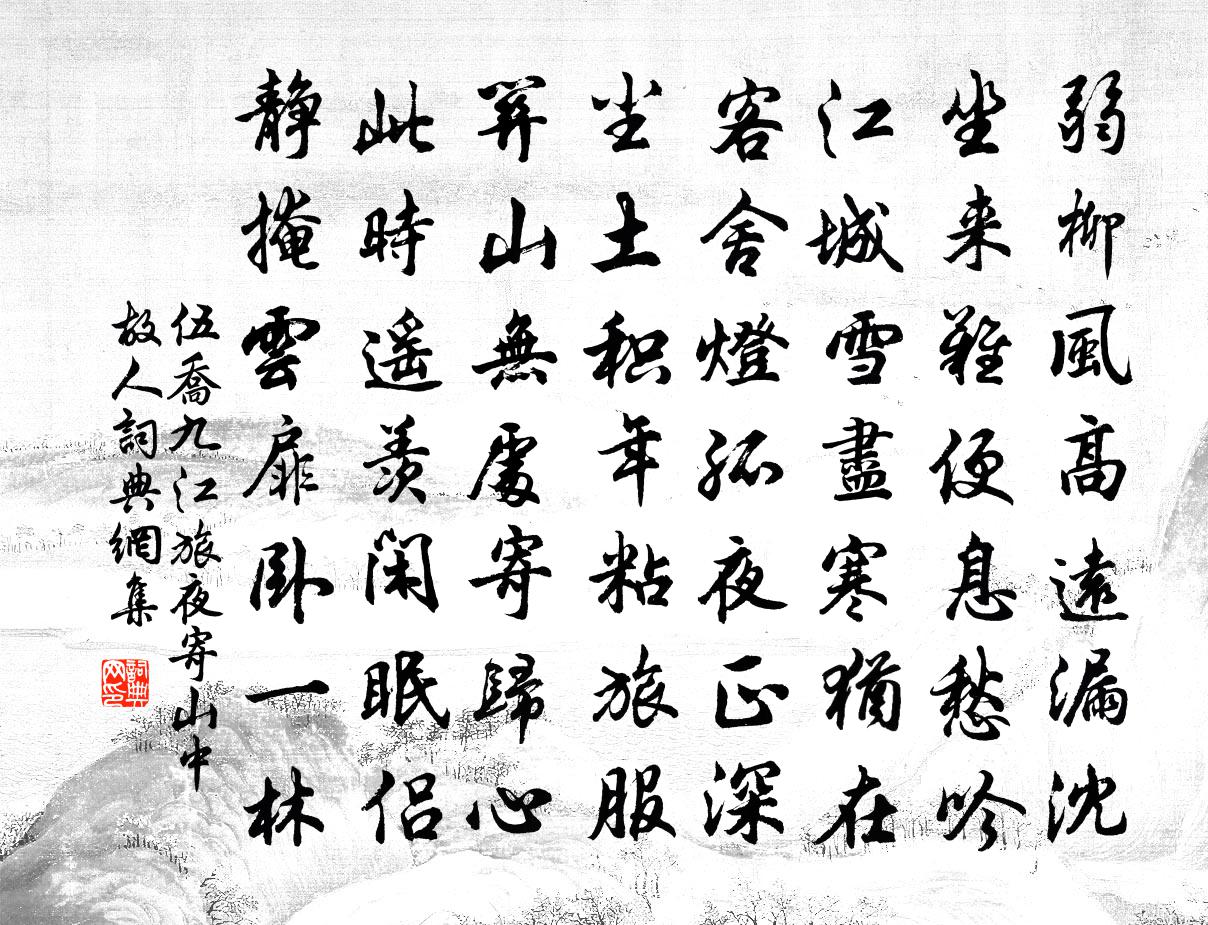 弱柳風高遠漏沈
坐来難便息愁吟
江城雪盡寒猶在
客舍燈孤夜正深
尘土积年粘旅服
關山無處寄歸心
此時遥羨閑眠侣
静掩雲扉卧一林
伍喬九江旅夜寄山中
故人詞典網集
詞典
网印